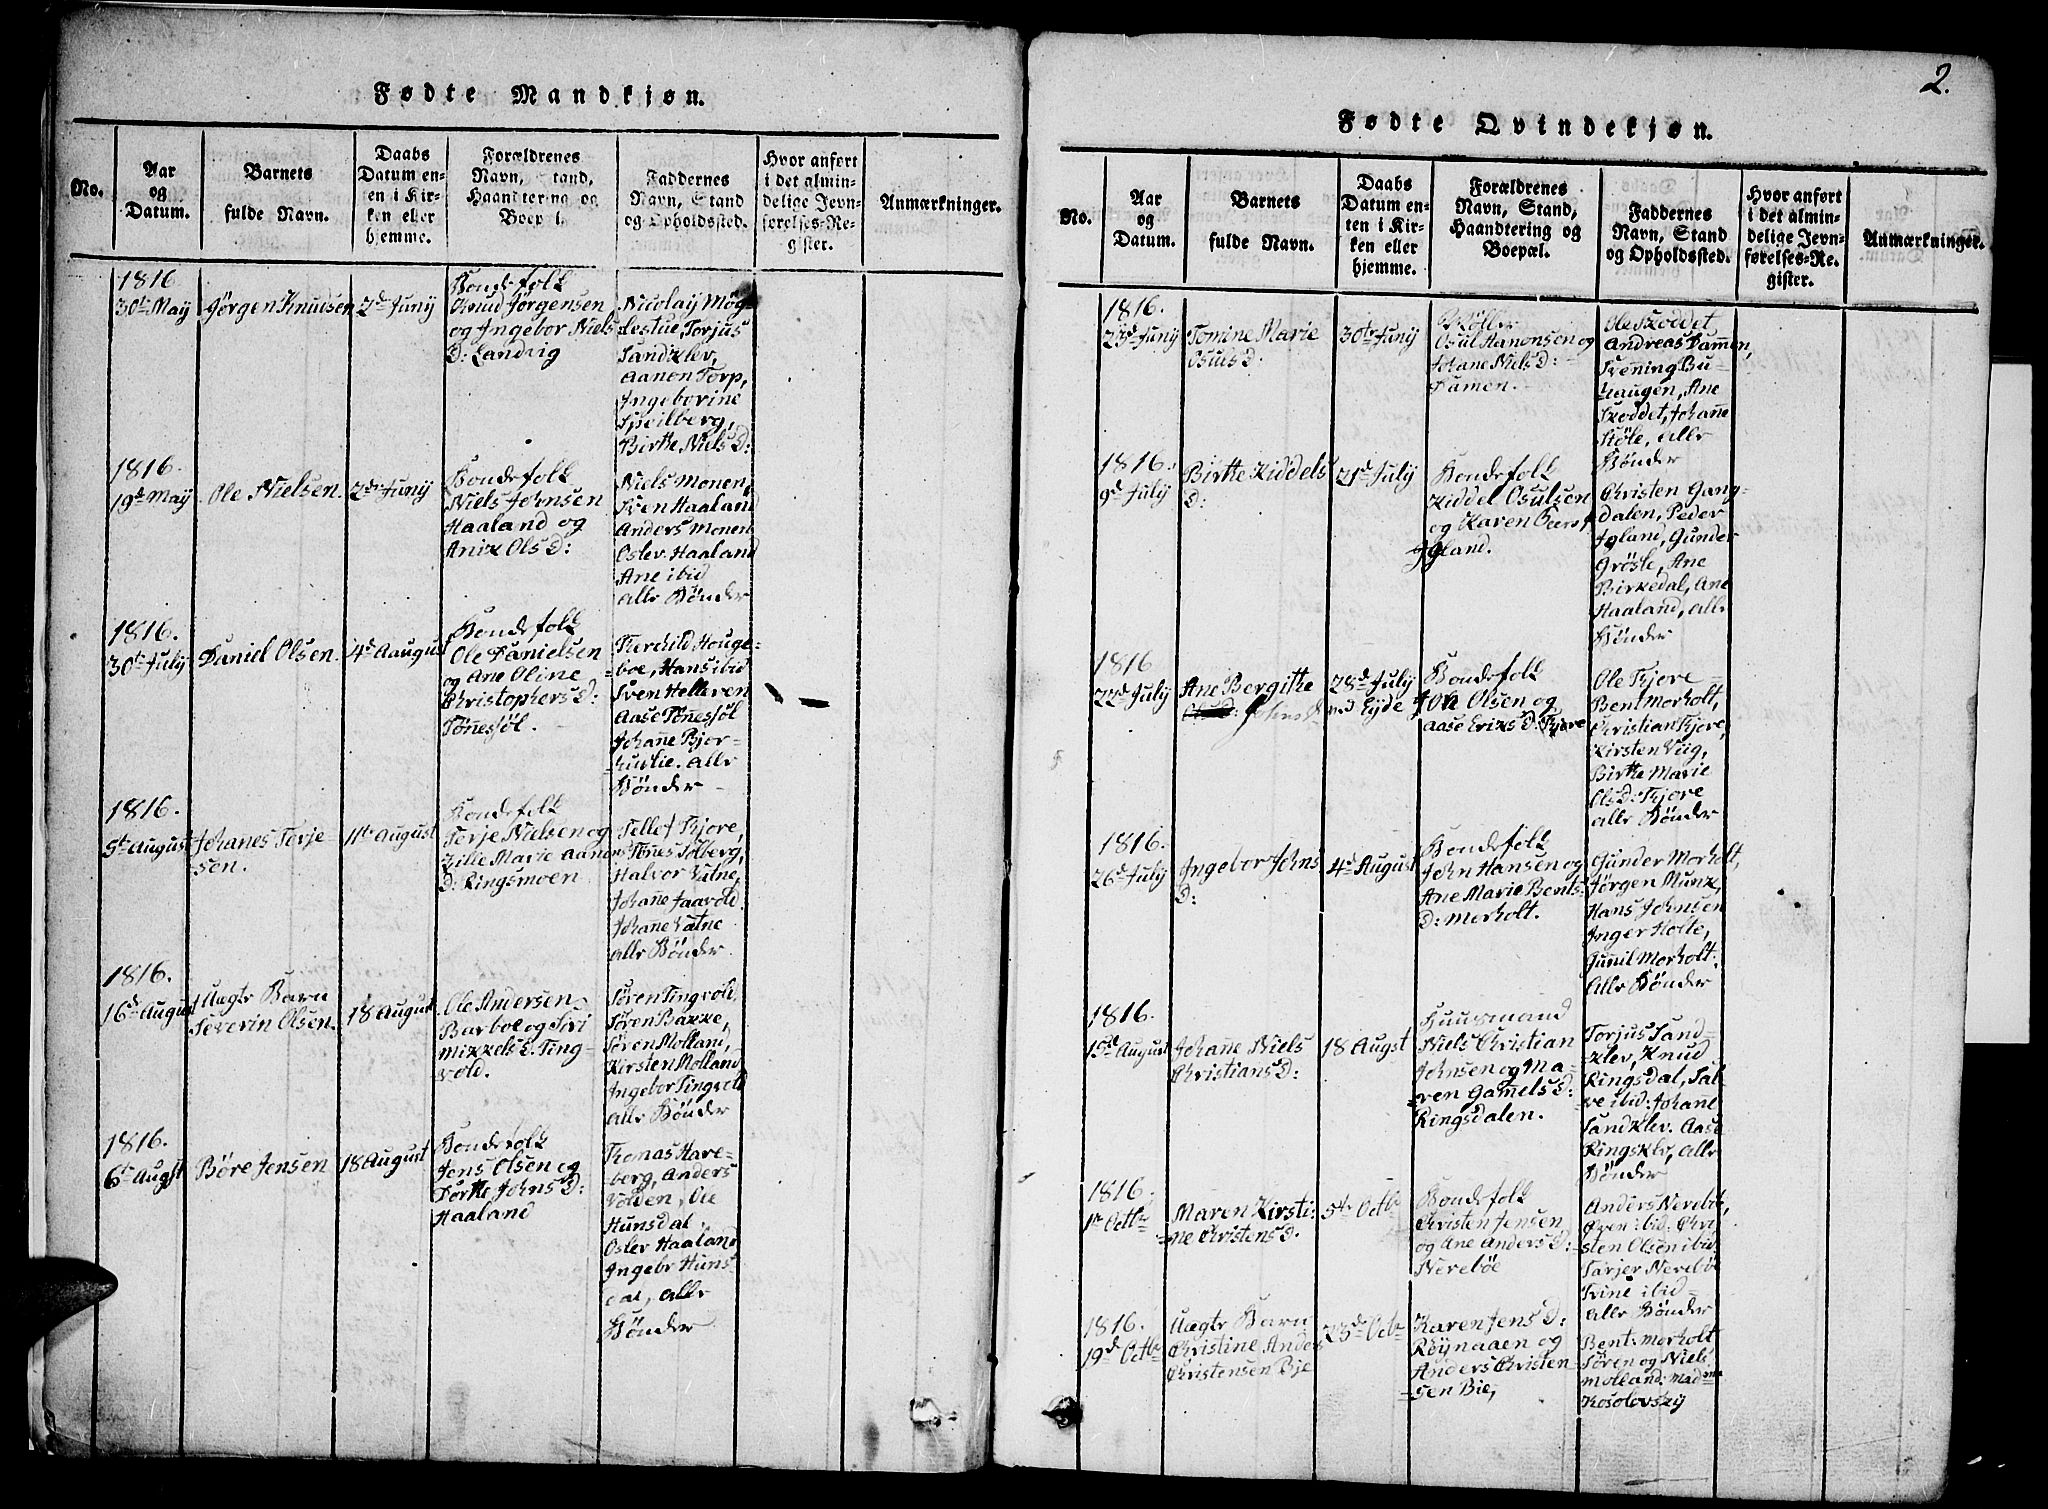 Fødte Mandkjøn.
No.
Aar
og
Datum.
Barnets
fulde Navn.
Daabs
Datum en-
en i Kir-
ken eller
hjemme.
Forældrenes
Navn, tand,
Haandtering og
Boep l.
Faddernes
Navn, Stand
og Opholdssted.
Hvor anført
i det almin-
delige Jevn-
førelses-Re-
gister.
Anmærkninger.
1816
30te May
Jørgen Knudsen
2d Junij
Bondefolk
Knud Jørgensen
og Ingebor Niels
D: Landvig
Nicolay Mog-
lestue, Torjus
Sandklev,
Aanon Torp,
Ingeborine
Speilberg,
Birthe Niels D:
1816.
19de May
Ole Nielsen.
2den Junij
Bondefolk
Niels Johnsen
Haaland og
Anix Ols D:
Niels Monen,
Sven Haaland
Anders Monen
Oslev Haaland
Ane ibid
alle Bønder
1816.
30te July
Daniel Olsen.
4d Aaugust
Bondefolk
Ole Danielsen
og Ane Oline
Christophers D:
Tønesøl.
Therchild Houge-
boe, Hans ibid
Sven Helleren
Aase Tønesøl
Johane Bjor-
huslie. alle
Bønder
1816.
5te August
Johanes Torje-
sen.
11te August
Bondefolk
Terje Nielsen og
Lille Marie Aanons
D: Ringsmoen
Tellef Kjore,
Tønes Solberg,
Halvor Vatne,
Johane Faavold.
Johane Vatne
alle Bønder
1816.
16de August
Uægte Barn
Severin Olsen.
18 August
Ole Andersen
Barboe og Siri
Mikkels D. Ting-
vold.
Søren Tingvold,
Søren Bakke,
Søren Molland,
Kirsten Molland
Ingebor Tingvold
alle Bønder
1816.
6te Augst
Børe Jensen
18 August
Bondefolk
Jens Olsen og
Dorthe Johns D:
Haaland
Thomas Hare-
berg, Anders
Volden, Ole
Hunsdal,
Oslev Haaland
Ingebr Huns-
dal, alle
Bønder
2.
Fødte Qvindekjøn.
No.
Aar
og
Datum.
Barnets
fulde Navn.
Daabs
Datum en-
ten i Kir-
ken eller
hjemme.
Forældrenes
Navn, Stand,
Haandtering og
Boepæl.
Faddernes
Navn, Stand
og Opholdssted.
Hvor anført
i det almin-
delige Jevn-
førelses-Re-
gister.
Anmærkninger.
1816.
23d Junij
Tomine Marie
Osuls D.
30te Junij
Møller
Osul Hanonsen og
Johane Niels D:
Damen.
Ole Skoddet
Andreas Dammen,
Svening Bu-
haugen, Ane
Skoddet, Johane
Støle, alle
Bønder
1816.
9d July
Birthe Kiddels
D:
21d July
Bondefolk
Kiddel Osulsen
og Karen Peers D
Igland.
Christen Gang-
dalen, Peder
Igland, Gunder
Grøsle, Ane
Birkedal, Ane
Haaland, alle
Bønder
1816
22d July
Ane Bergithe
Johns D
28d July
ved Eyde
Bondefolk
John Olsen og
Aase Eriks D: Kjore
Ole Kjore
Bent Morholt,
Christian Kjore,
Kirsten Viig,
Birthe Marie
Ols D: Kjore
alle Bønder
1816.
26d July
Ingebor Johns
D:
4d August
Bondefolk
John Hansen og
Ane Marie Bents-
D: Morholt.
Gunder Morholt,
Jørgen Munk,
Hans Johnsen
Inger Holte,
Gunil Morholt.
Alle Bønder
1816.
15d August
Johane Niels
Christians D:
18 Augst
Huusmand
Niels Christian
Johnsen og Ma-
ren Gamels D:
Ringsdalen.
Torjus Sand-
klev, Knud
Ringsdal, Sal-
ve ibid: Johane
Sandklev. Aase
Ringsklev, alle
Bønder
1816.
1te Octbr
Maren Kirsti-
ne Christens D.
5te Octb
Bondefolk
Christen Jensen
og Ane Anders D:
Nerebøe
Anders Nerebøe,
ibid. Chri-
sten Olsen ibid
Tarjer Nerebø
Trine ibid
alle Bønder
1816.
19d Octbr
Uægte Barn
Christine Anders
Christensen Bje
23d Octbr
Karen Jens D:
Røynaaen og
Anders Christen-
sen Bie,
Bent: Morholt
Søren og Niels
Molland: Madme
Kosolovsky